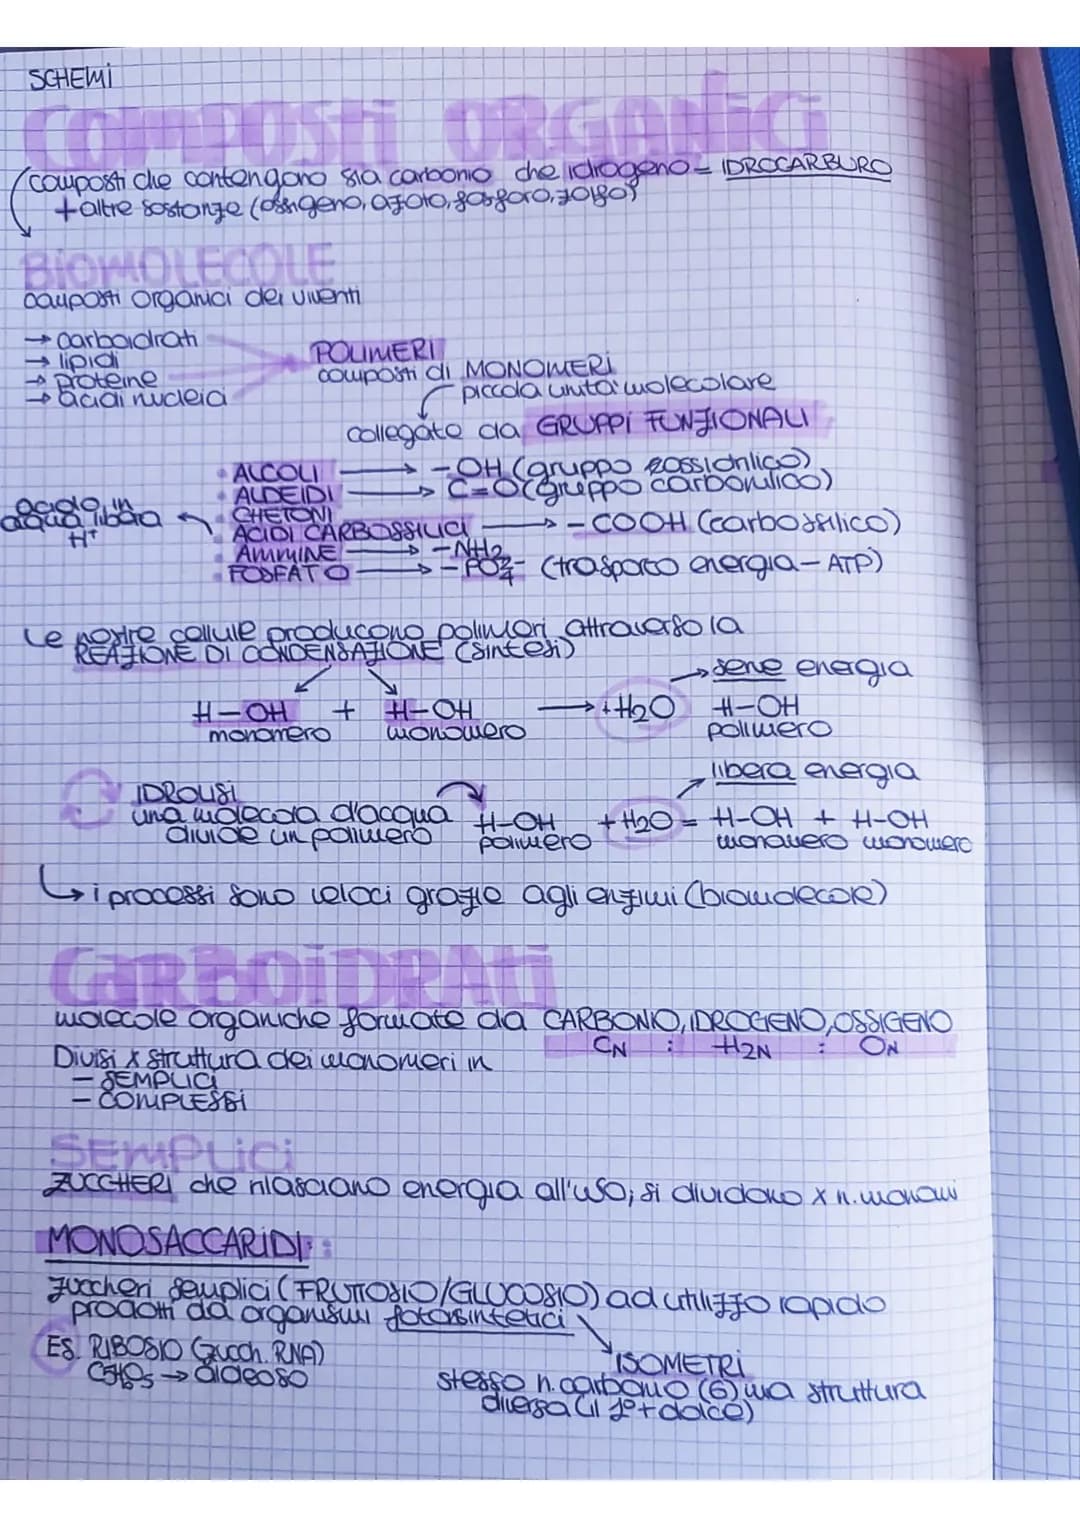 SCHEMI
COMPOSTI ORGANICI
composti che contengono sia carbonio che idrogeno = IDROCARBURO
+ altre sostanze (ossigeno, azoto, fosforo, zolfo)
BIOMOLECOLE
composti organici dei viventi
→ carboidrati
→ lipidi
→ proteine
→ acidi nucleici
POLIMERI
composti di MONOMERI
piccola unità molecolare
collegate da GRUPPI FUNZIONALI
• ALCOLI → -OH (gruppo ossidrilico)
• ALDEIDI → C=O (gruppo carbonilico)
• CHETONI
acido in acqua libera H⁺
• ACIDI CARBOSSILICI → -COOH (carbossilico)
• AMMINE → -NH₂
• FOSFATO → -PO₄²⁻ (trasporto energia - ATP)
Le nostre cellule producono polimeri attraverso la
REAZIONE DI CONDENSAZIONE (sintesi)
→ serve energia
H-OH + H-OH → + H₂O H-OH
monomero monomero polimero
→ libera energia
IDROLISI
una molecola d'acqua H-OH + H₂O = H-OH + H-OH
divide un polimero polimero monomero monomero
↳ i processi sono veloci grazie agli enzimi (biomolecole)
CARBOIDRATI
molecole organiche formate da CARBONIO, IDROGENO, OSSIGENO
CN : H2N : ON
Divisi x struttura dei monomeri in
- SEMPLICI
- COMPLESSI
SEMPLICI
ZUCCHERI che rilasciano energia all'uso, si dividono x n. monomi
MONOSACCARIDI:
zuccheri semplici (FRUTTOSIO/GLUCOSIO) ad utilizzo rapido
prodotti da organismi fotosintetici
ES. RIBOSIO (zucch. RNA)
ISOMETRI
→ aldeoso
stesso n. carbonio (6) ma struttura
diversa (il 1° + dolce)